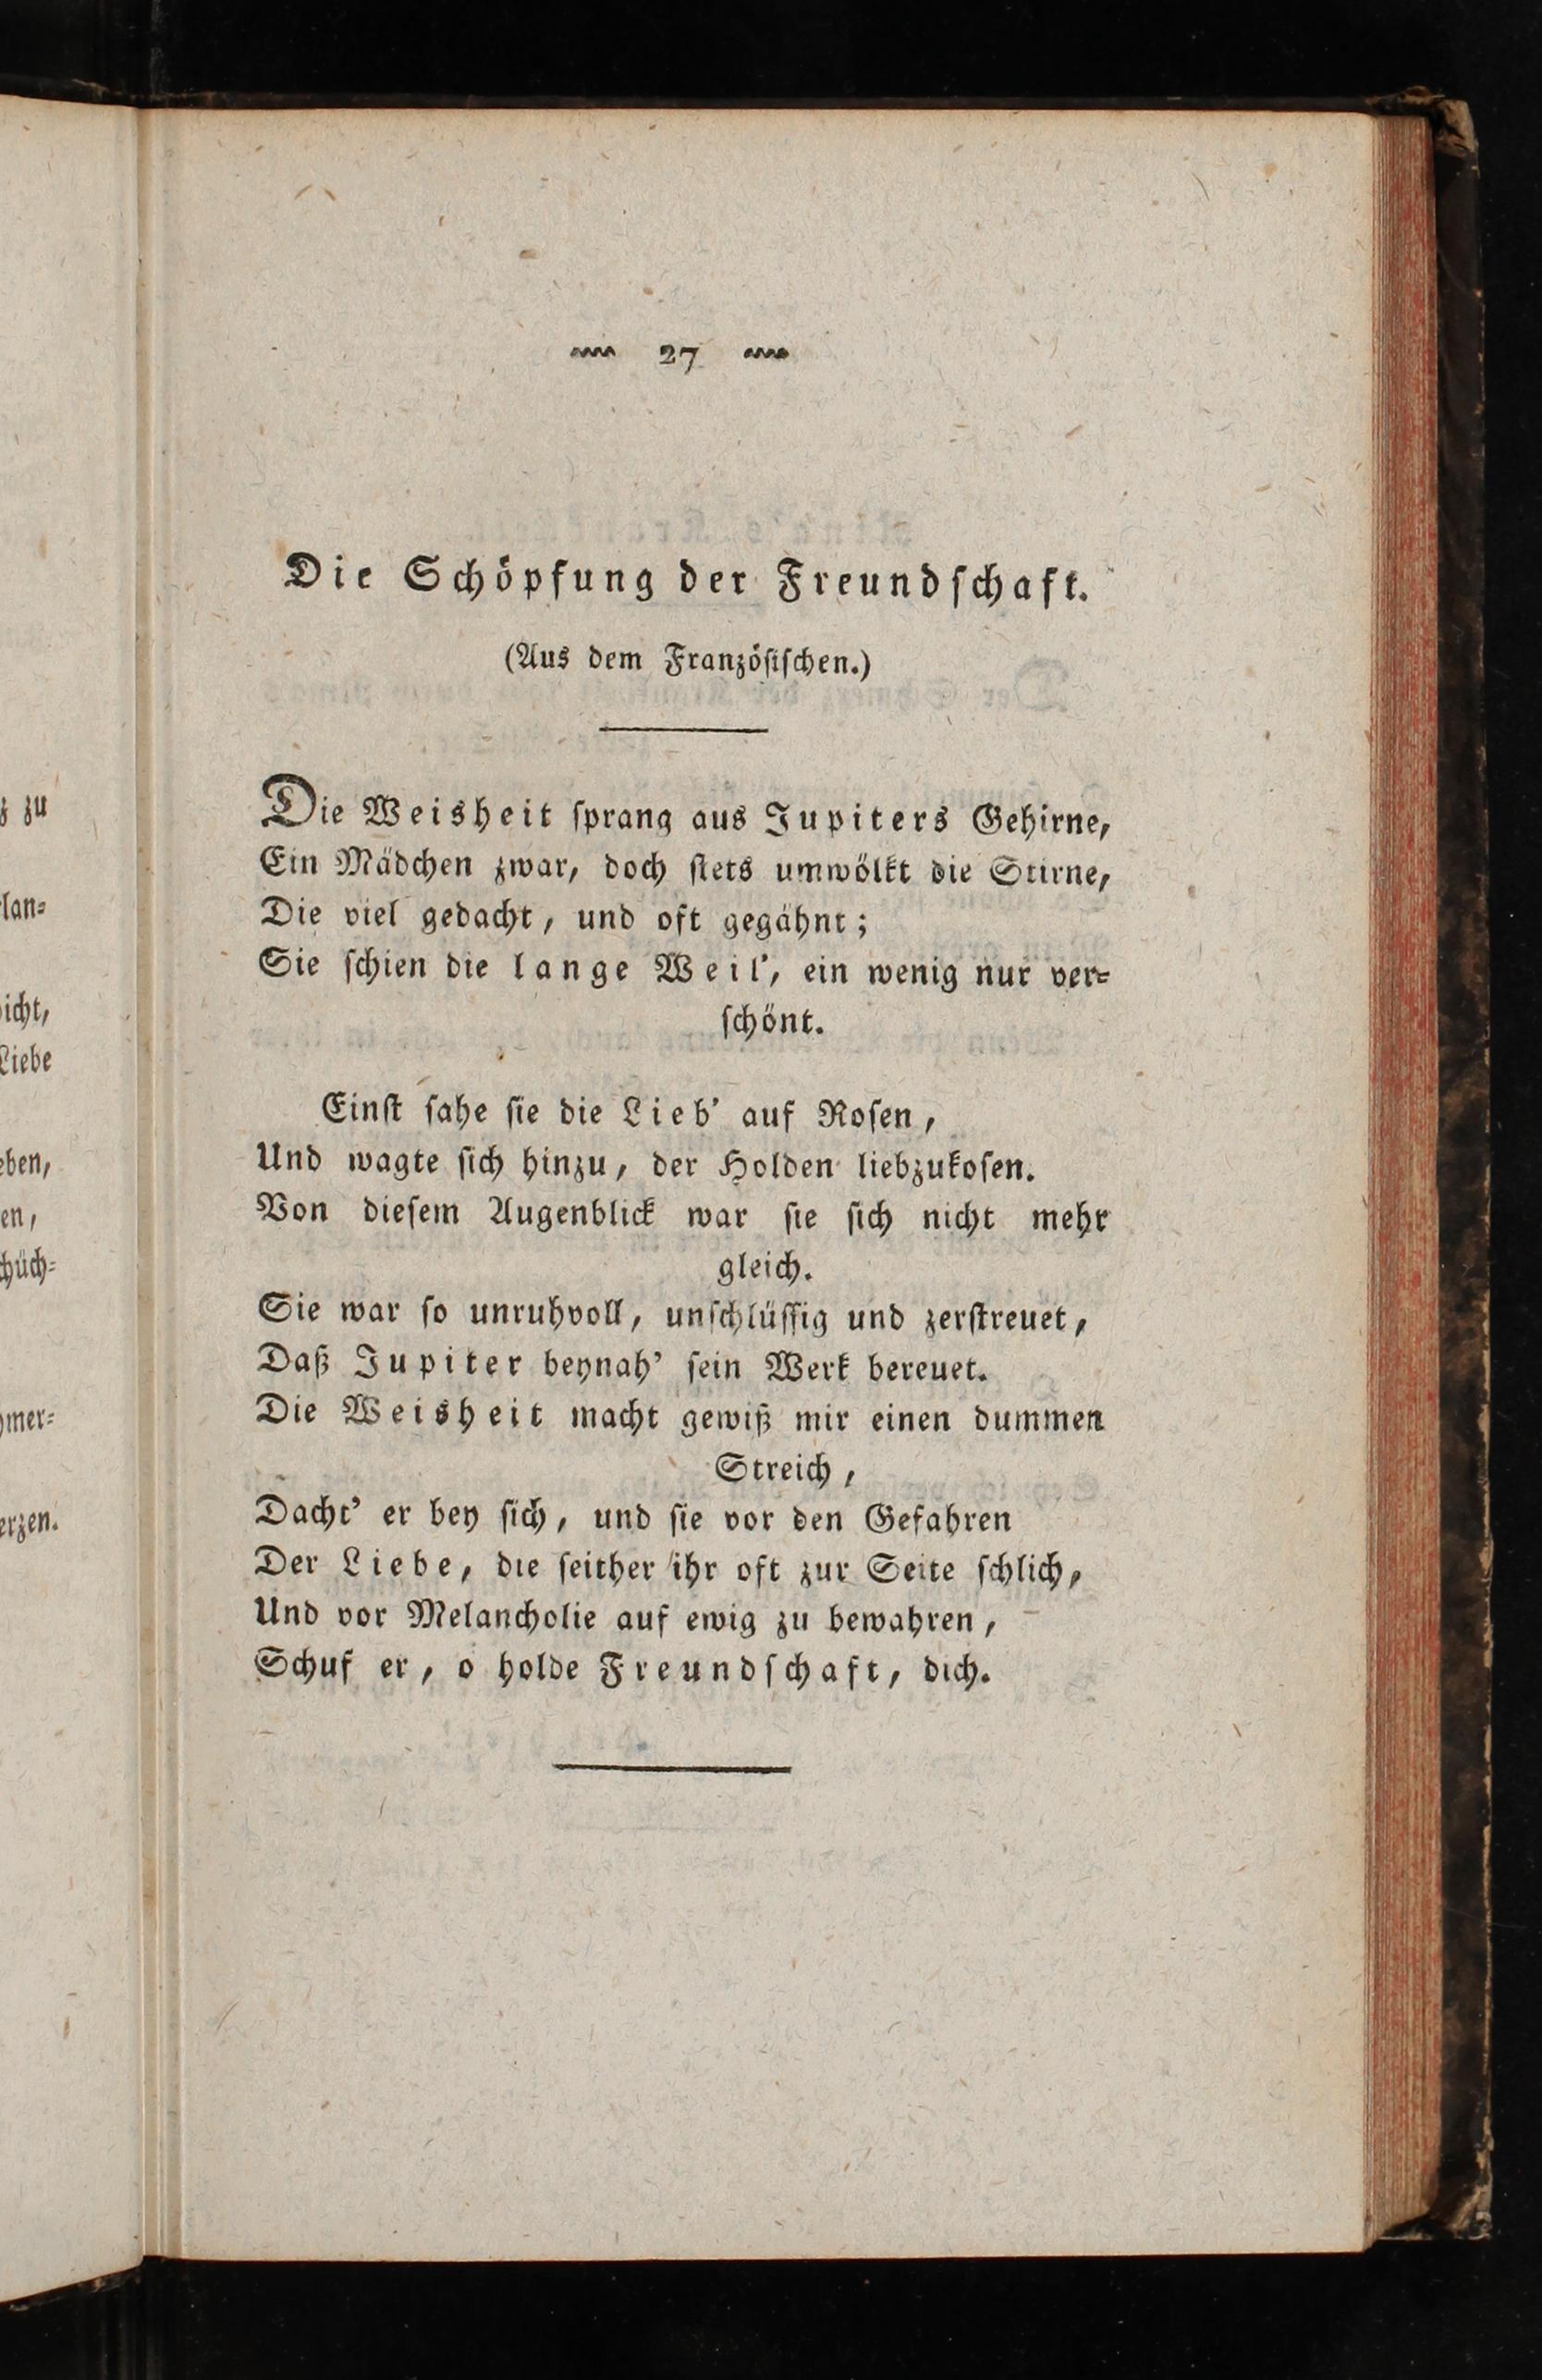 27
Die Schöpfung der Freundſchaft.
(Aus dem Franzöſiſchen.)
Die Weisheit ſprang aus Jupiters Gehirne,
Ein Mädchen zwar, doch ſtets umwölkt die Stirne,
Die viel gedacht, und oft gegähnt;
Sie ſchien die lange Weil', ein wenig nur ver⸗
ſchönt.
Einſt ſahe ſie die Lieb' auf Roſen,
Und wagte ſich hinzu, der Holden liebzukoſen.
Von dieſem Augenblick war ſie ſich nicht mehr
gleich.
Sie war ſo unruhvoll, unſchlüſſig und zerſtreuet,
Daß Jupiter beynah' ſein Werk bereuet.
Die Weisheit macht gewiß mir einen dummen
Streich,
Dacht' er bey ſich, und ſie vor den Gefahren
Der Liebe, die ſeither ihr oft zur Seite ſchlich,
Und vor Melancholie auf ewig zu bewahren,
Schuf er, o holde Freundſchaft, dich.